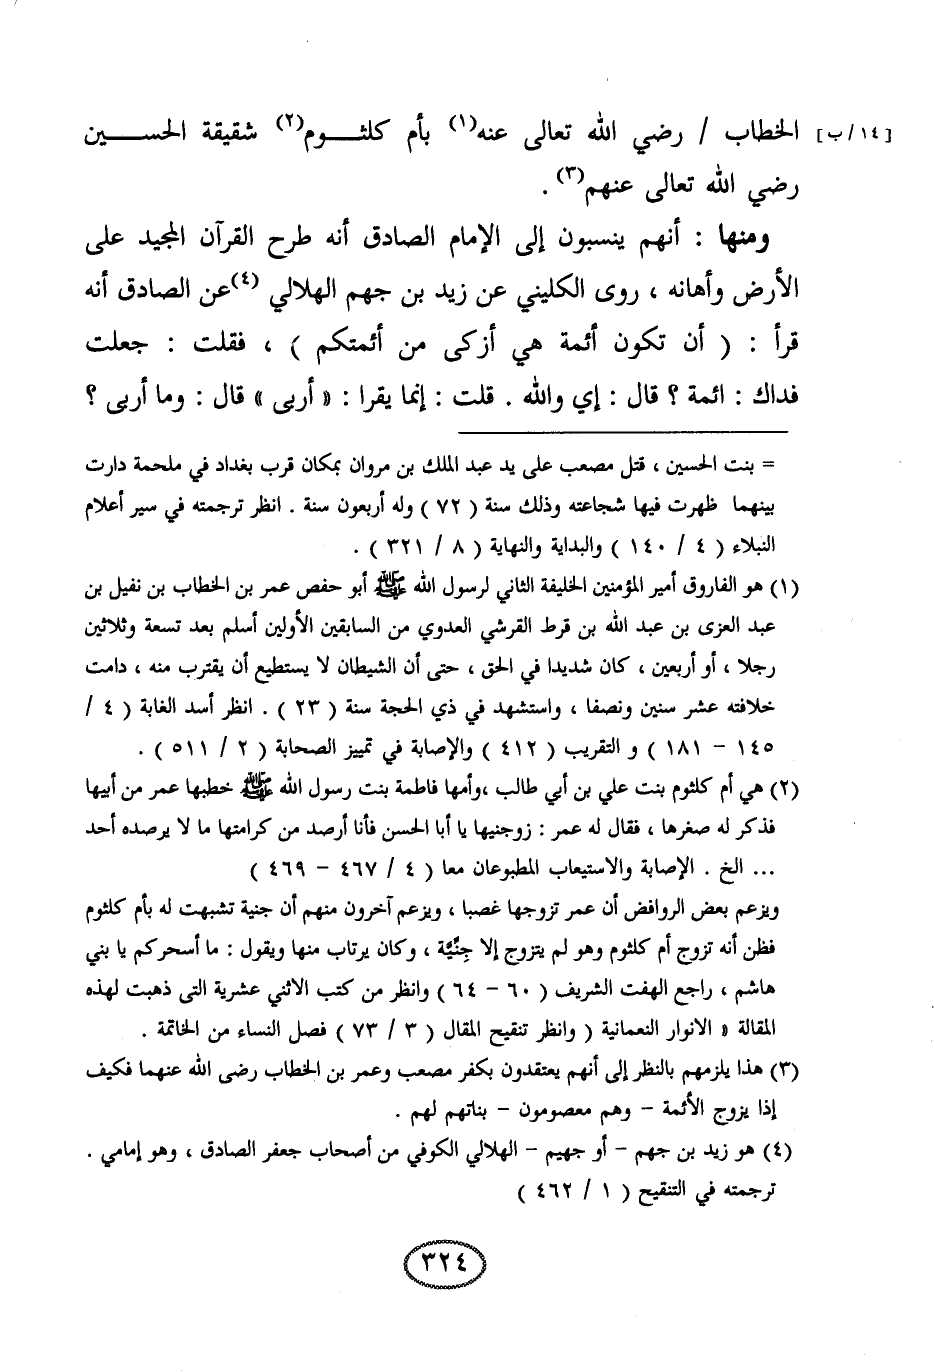 [ ١٤/ب] الخطاب / رضي الله تعالى عنه(١) بأم كلثــوم(٢) شقيقة الحســـين
رضي الله تعالى عنهم(٣) .
ومنها : أنهم ينسبون إلى الإمام الصادق أنه طرح القرآن المجيد على
الأرض وأهانه ، روى الكليني عن زيد بن جهم الهلالي (٤)عن الصادق أنه
قرأ : ( أن تكون أئمة هي أزكى من أئمتكم ) ، فقلت : جعلت
فداك : ائمة ؟ قال : إي والله . قلت : إنما يقرا : « أربى » قال : وما أربى ؟
= بنت الحسين ، قتل مصعب على يد عبد الملك بن مروان بمكان قرب بغداد في ملحمة دارت
بينهما ظهرت فيها شجاعته وذلك سنة ( ٧٢ ) وله أربعون سنة . انظر ترجمته في سير أعلام
النبلاء ( ٤ / ١٤٠ ) والبداية والنهاية ( ٨ / ٣٢١ ) .
(١) هو الفاروق أمير المؤمنين الخليفة الثاني لرسول الله ﷺ أبو حفص عمر بن الخطاب بن نفيل بن
عبد العزى بن عبد الله بن قرط القرشي العدوي من السابقين الأولين أسلم بعد تسعة وثلاثين
رجلا ، أو أربعين ، كان شديدا في الحق ، حتى أن الشيطان لا يستطيع أن يقترب منه ، دامت
خلافته عشر سنين ونصفا ، واستشهد في ذي الحجة سنة ( ٢٣ ) . انظر أسد الغابة ( ٤ /
١٤٥ - ١٨١ ) و التقريب ( ٤١٢ ) والإصابة في تمييز الصحابة ( ٢ / ٥١١ ) .
(٢) هي أم كلثوم بنت علي بن أبي طالب ،وأمها فاطمة بنت رسول الله ﷺ خطبها عمر من أبيها
فذكر له صغرها ، فقال له عمر : زوجنيها يا أبا الحسن فأنا أرصد من كرامتها ما لا يرصده أحد
... الخ . الإصابة والاستيعاب المطبوعان معا ( ٤ / ٤٦٧ - ٤٦٩ )
ويزعم بعض الروافض أن عمر تزوجها غصبا ، ويزعم آخرون منهم أن جنية تشبهت له بأم كلثوم
فظن أنه تزوج أم كلثوم وهو لم يتزوج إلا جِنِّيَّة ، وكان يرتاب منها ويقول : ما أسحركم يا بني
هاشم ، راجع الهفت الشريف ( ٦٠ - ٦٤ ) وانظر من كتب الاثني عشرية التى ذهبت لهذه
المقالة « الانوار النعمانية ( وانظر تنقيح المقال ( ٣ / ٧٣ ) فصل النساء من الخاتمة .
(٣) هذا يلزمهم بالنظر إلى أنهم يعتقدون بكفر مصعب وعمر بن الخطاب رضى الله عنهما فكيف
إذا يزوج الأئمة - وهم معصومون - بناتهم لهم .
(٤) هو زيد بن جهم - أو جهيم - الهلالي الكوفي من أصحاب جعفر الصادق ، وهو إمامي .
ترجمته في التنقيح ( ١ / ٤٦٢ )
٣٢٤